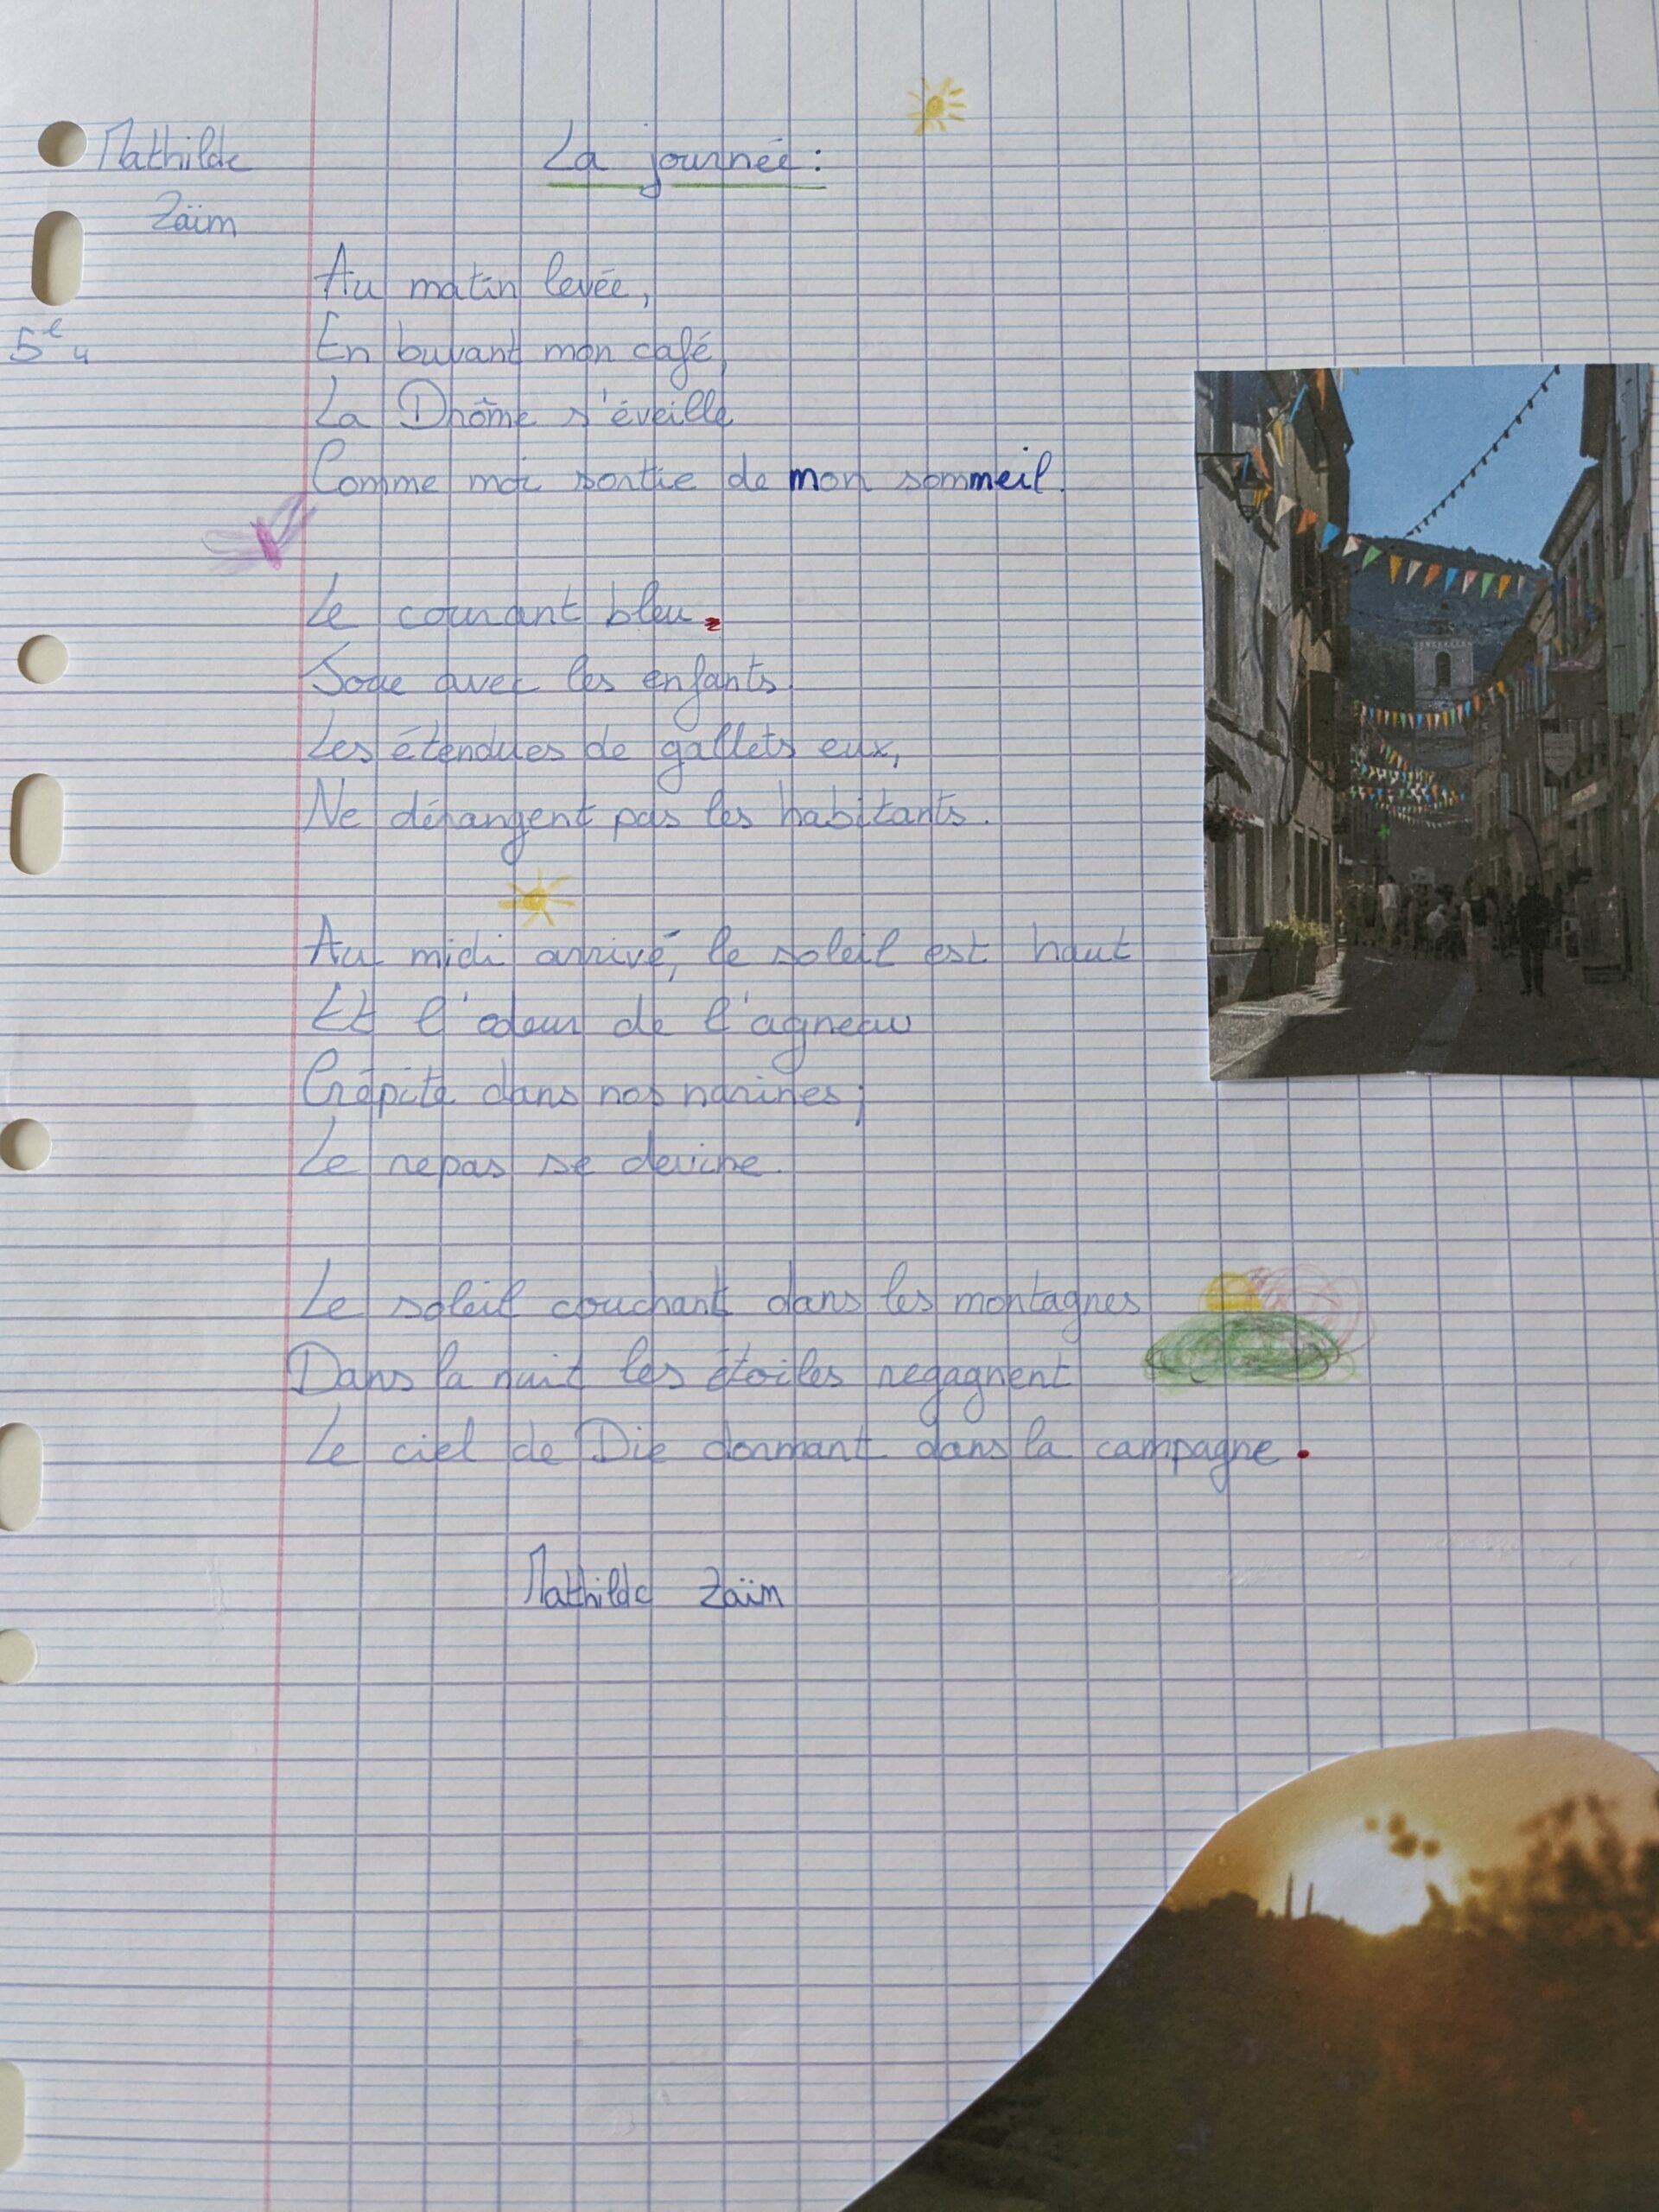 Mathilde
Zaïm
5e4
La journée :
Au matin levée,
En buvant mon café,
La Drôme s'éveille
Comme moi sortie de mon sommeil.
Le courant bleu.
Joue avec les enfants
Les étendues de gallets eux,
Ne dérangent pas les habitants.
Au midi arrivé, le soleil est haut
Et l'odeur de l'agneau
Crépite dans nos narines ;
Le repas se devine.
Le soleil couchant dans les montagnes
Dans la nuit les étoiles regagnent
Le ciel de Die dormant dans la campagne.
Mathilde Zaïm